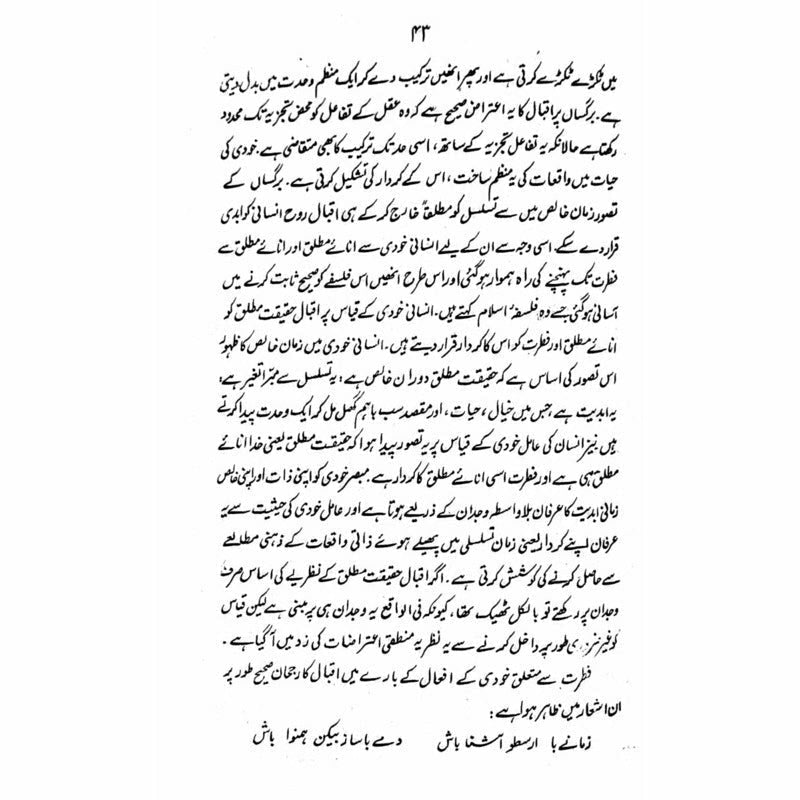 ۴۳
میں ٹکڑے ٹکڑے کرتی ہے اور پھر انھیں ترکیب دے کر ایک منظم وحدت میں بدل دیتی
ہے۔ برگساں پر اقبال کا یہ اعتراض صحیح ہے کہ وہ عقل کے تفاعل کو محض تجزیہ تک محدود
رکھتا ہے حالانکہ یہ تفاعل تجزیہ کے ساتھ، اسی حد تک ترکیب کا بھی متقاضی ہے۔ خودی کی
حیات میں واقعات کی یہ منظم ساخت، اس کے کردار کی تشکیل کرتی ہے۔ برگساں کے
تصور زمان خالص میں سے تسلسل کو مطلقاً خارج کر کے ہی اقبال روح انسانی کو ابدی
قرار دے سکے۔ اسی وجہ سے ان کے لیے انسانی خودی سے انائے مطلق اور انائے مطلق سے
فطرت تک پہنچنے کی راہ ہموار ہوگئی اور اس طرح انھیں اس فلسفے کو صحیح ثابت کرنے میں
آسانی ہوگئی جسے وہ فلسفۂ اسلام کہتے ہیں۔ انسانی خودی کے قیاس پر اقبال حقیقت مطلق کو
انائے مطلق اور فطرت کو اس کا کردار قرار دیتے ہیں۔ انسانی خودی میں زمان خالص کا ظہور
اس تصور کی اساس ہے کہ حقیقت مطلق دوران خالص ہے؛ یہ تسلسل سے مبرّا تغیر ہے؛
یہ ابدیت ہے جس میں خیال، حیات، اور مقصد سب باہم گھل مل کر ایک وحدت پیدا کرتے
ہیں نیز انسان کی عامل خودی کے قیاس پر یہ تصور پیدا ہوا کہ حقیقت مطلق یعنی خدا انائے
مطلق ہی ہے اور فطرت اسی انائے مطلق کا کردار ہے۔ مبصر خودی کو اپنی ذات اور اپنی خالص
زمانی ابدیت کا عرفان بلاواسطہ وجدان کے ذریعے ہوتا ہے اور عامل خودی کی حیثیت سے یہ
عرفان اپنے کردار یعنی زمان تسلسلی میں پھیلے ہوئے ذاتی واقعات کے ذہنی مطالعے
سے حاصل کرنے کی کوشش کرتی ہے۔ اگر اقبال حقیقت مطلق کے نظریے کی اساس صرف
وجدان پر رکھتے تو بالکل ٹھیک تھا، کیونکہ فی الواقع یہ وجدان ہی پر مبنی ہے لیکن قیاس
کو غیر ضروری طور پر داخل کرنے سے یہ نظریہ منطقی اعتراضات کی زد میں آگیا ہے۔
فطرت سے متعلق خودی کے افعال کے بارے میں اقبال کا رجحان صحیح طور پر
ان اشعار میں ظاہر ہوا ہے:
زمانے با ارسطو آشنا باش دمے با ساز بیکن ہمنوا باش